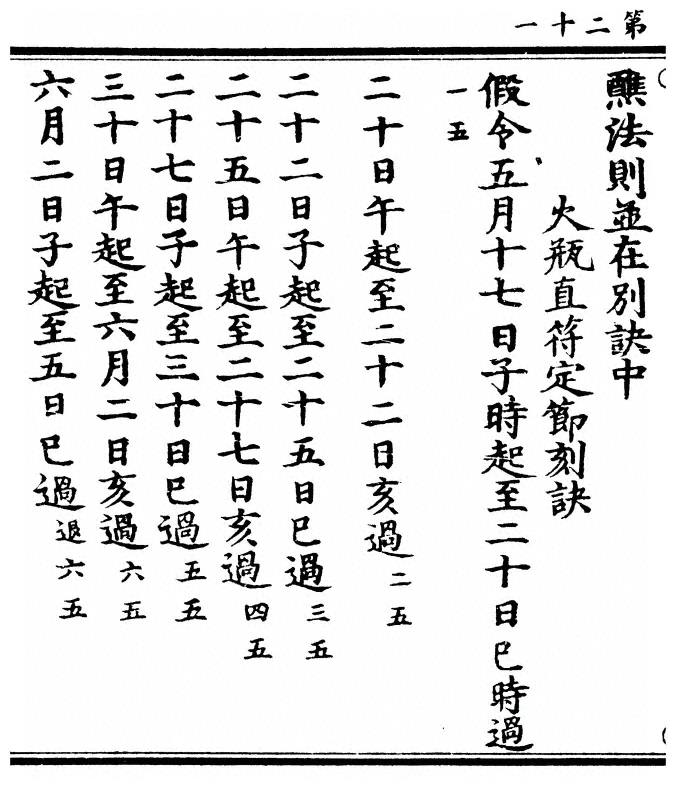 第二十一
醮法則並在別訣中
火瓶直符定節刻訣
假令五月十七日子時起至二十日巳時過
一五
二十日午起至二十二日亥過二五
二十二日子起至二十五日巳過三五
二十五日午起至二十七日亥過四五
二十七日子起至三十日巳過五五
三十日午起至六月二日亥過六五
六月二日子起至五日巳過退六五